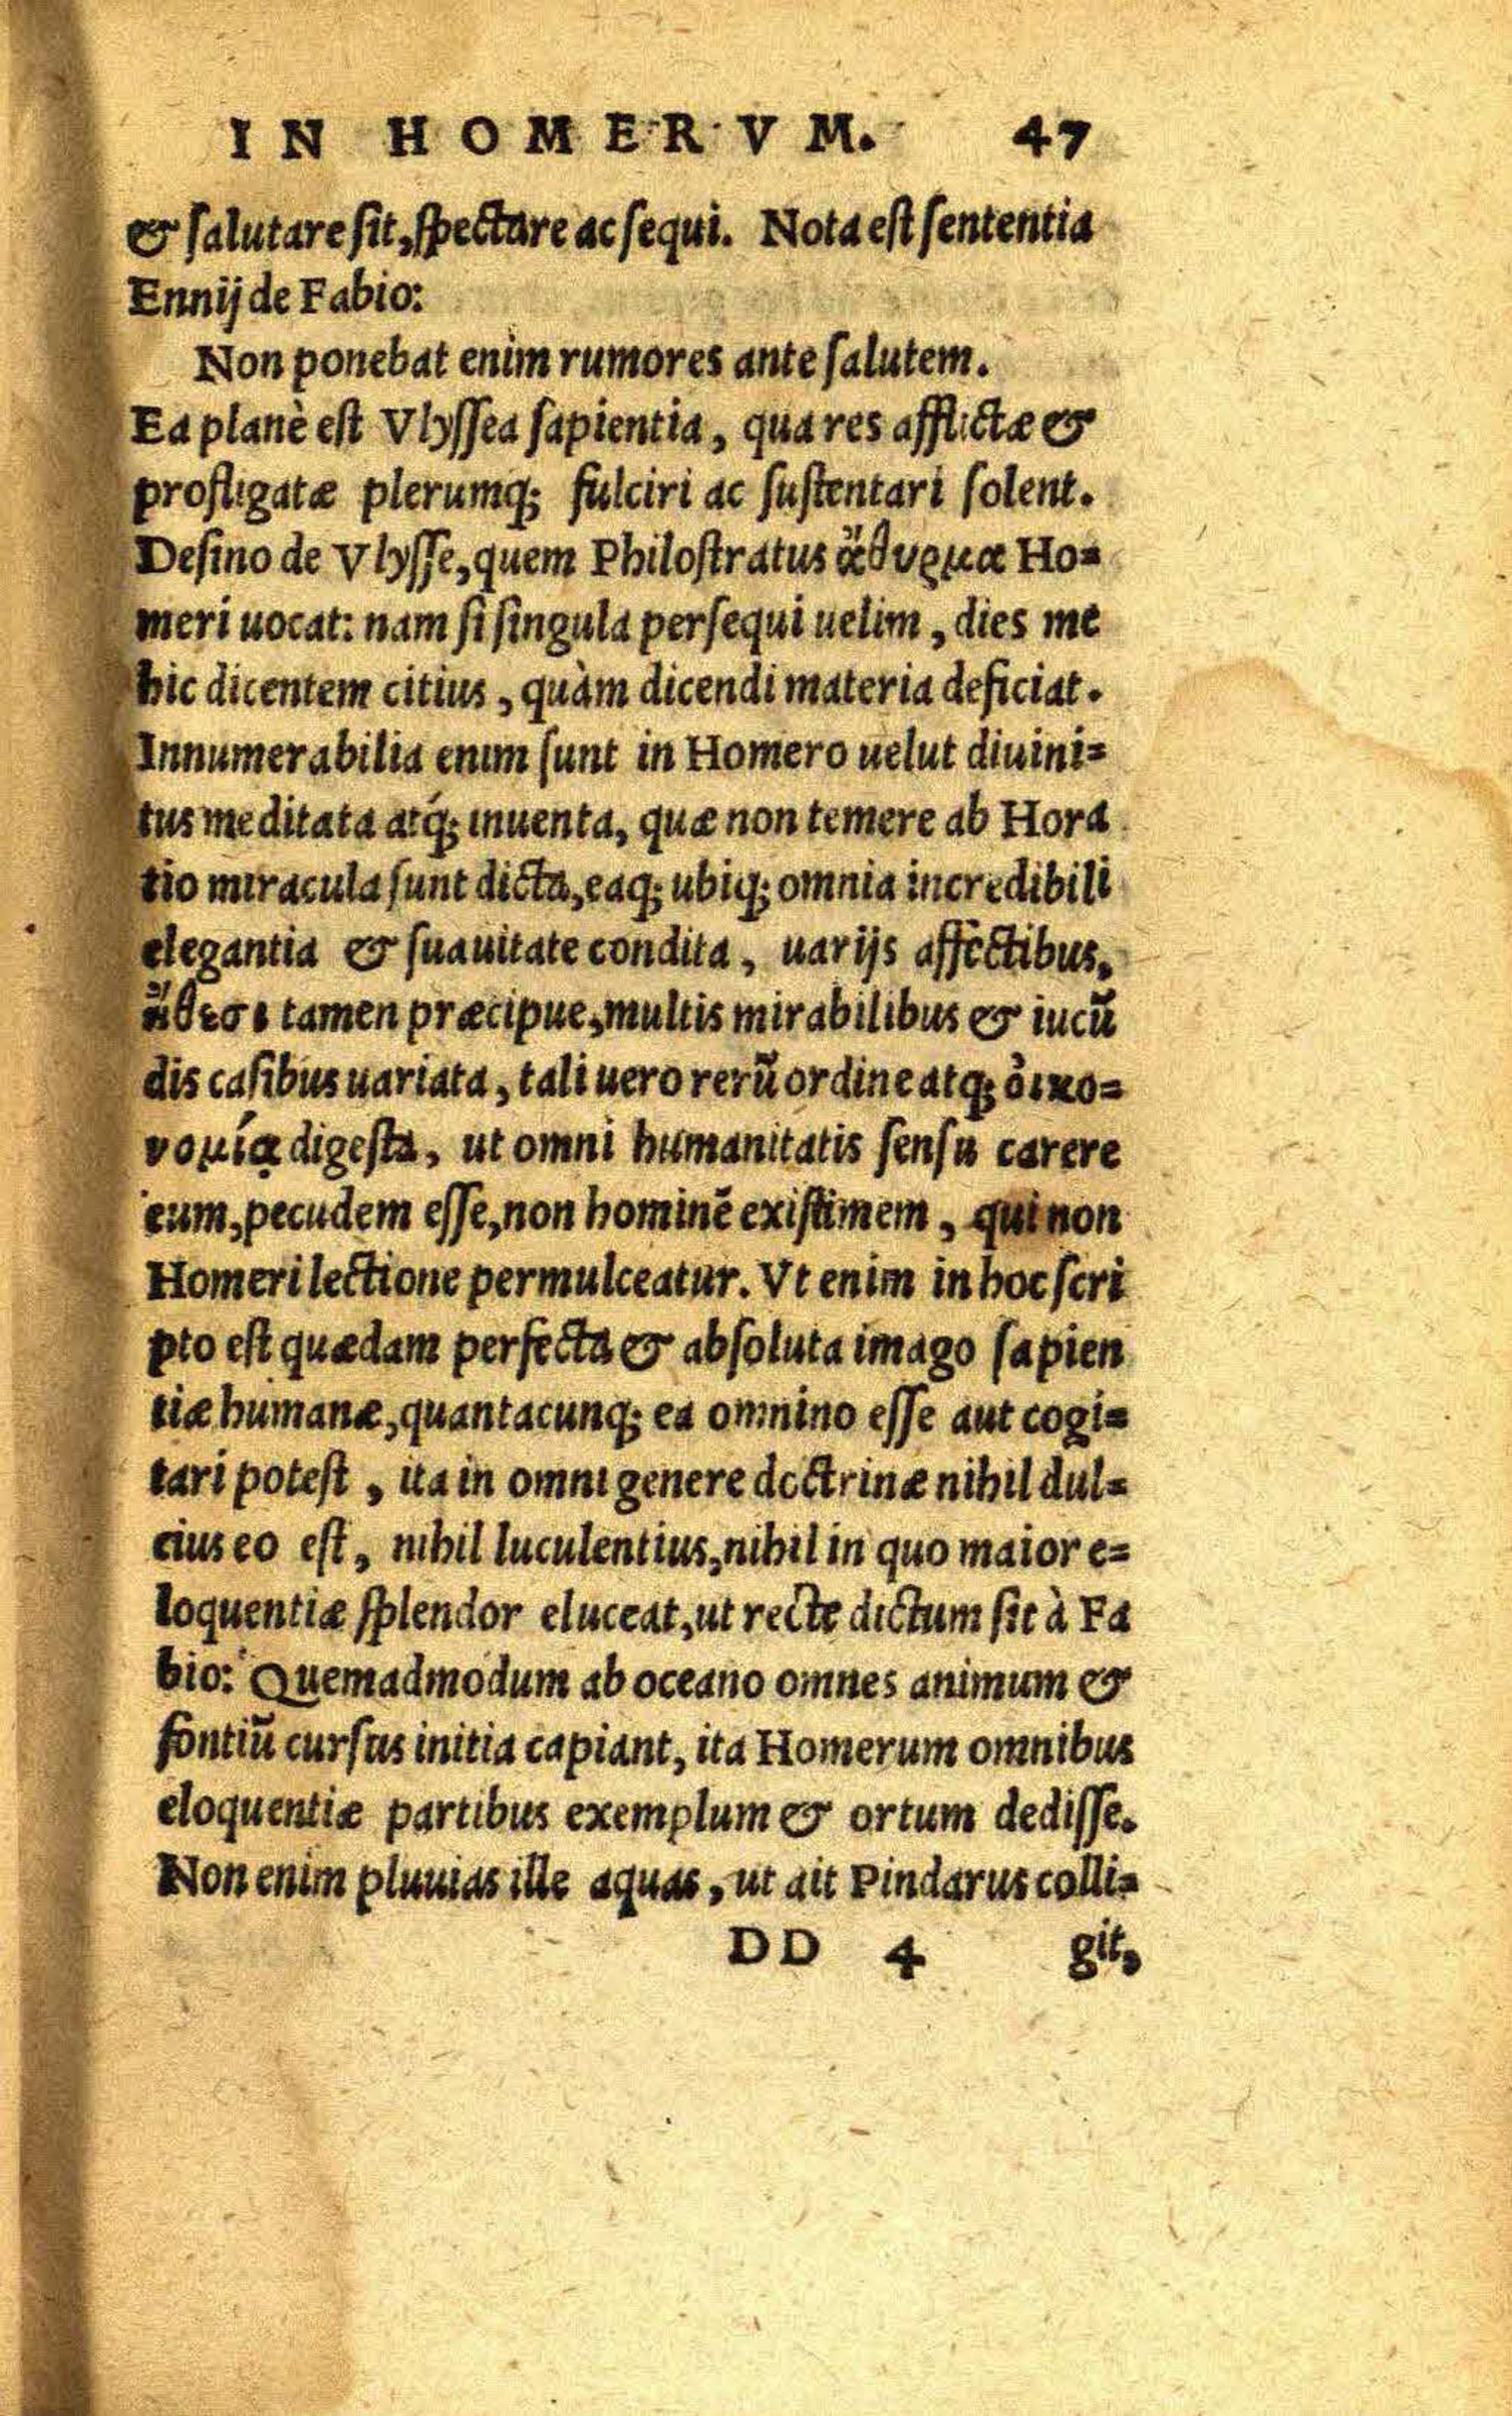 IN HOMERVM. 47
& ſalutare ſit, ſpectare ac ſequi. Nota eſt ſententia
Ennij de Fabio:
Non ponebat enim rumores ante ſalutem.
Ea planè eſt Vlyſſea ſapientia, qua res afflictæ &
profligatæ plerumq; fulciri ac ſuſtentari ſolent.
Deſino de Vlyſſe, quem Philoſtratus ἄθυρμα Ho=
meri uocat: nam ſi ſingula perſequi uelim, dies me
hic dicentem citius, quàm dicendi materia deficiat.
Innumerabilia enim ſunt in Homero uelut diuini=
tus meditata atq́; inuenta, quæ non temere ab Hora
tio miracula ſunt dicta, eaq; ubiq; omnia incredibili
elegantia & ſuauitate condita, uarijs affectibus,
ἤθεσι tamen præcipue, multis mirabilibus & iucũ
dis caſibus uariata, tali uero rerũ ordine atq; ὀικο=
νομίᾳ digeſta, ut omni humanitatis ſenſu carere
eum, pecudem eſſe, non hominẽ exiſtimem, qui non
Homeri lectione permulceatur. Vt enim in hoc ſcri
pto eſt quædam perfecta & abſoluta imago ſapien
tiæ humanæ, quantacunq; ea omnino eſſe aut cogi=
tari poteſt, ita in omni genere doctrinæ nihil dul=
cius eo eſt, nihil luculentius, nihil in quo maior e=
loquentiæ ſplendor eluceat, ut recte dictum ſit à Fa
bio: Quemadmodum ab oceano omnes animum &
fontiũ curſus initia capiant, ita Homerum omnibus
eloquentiæ partibus exemplum & ortum dediſſe.
Non enim pluuias ille aquas, ut ait Pindarus colli=
DD 4 git,